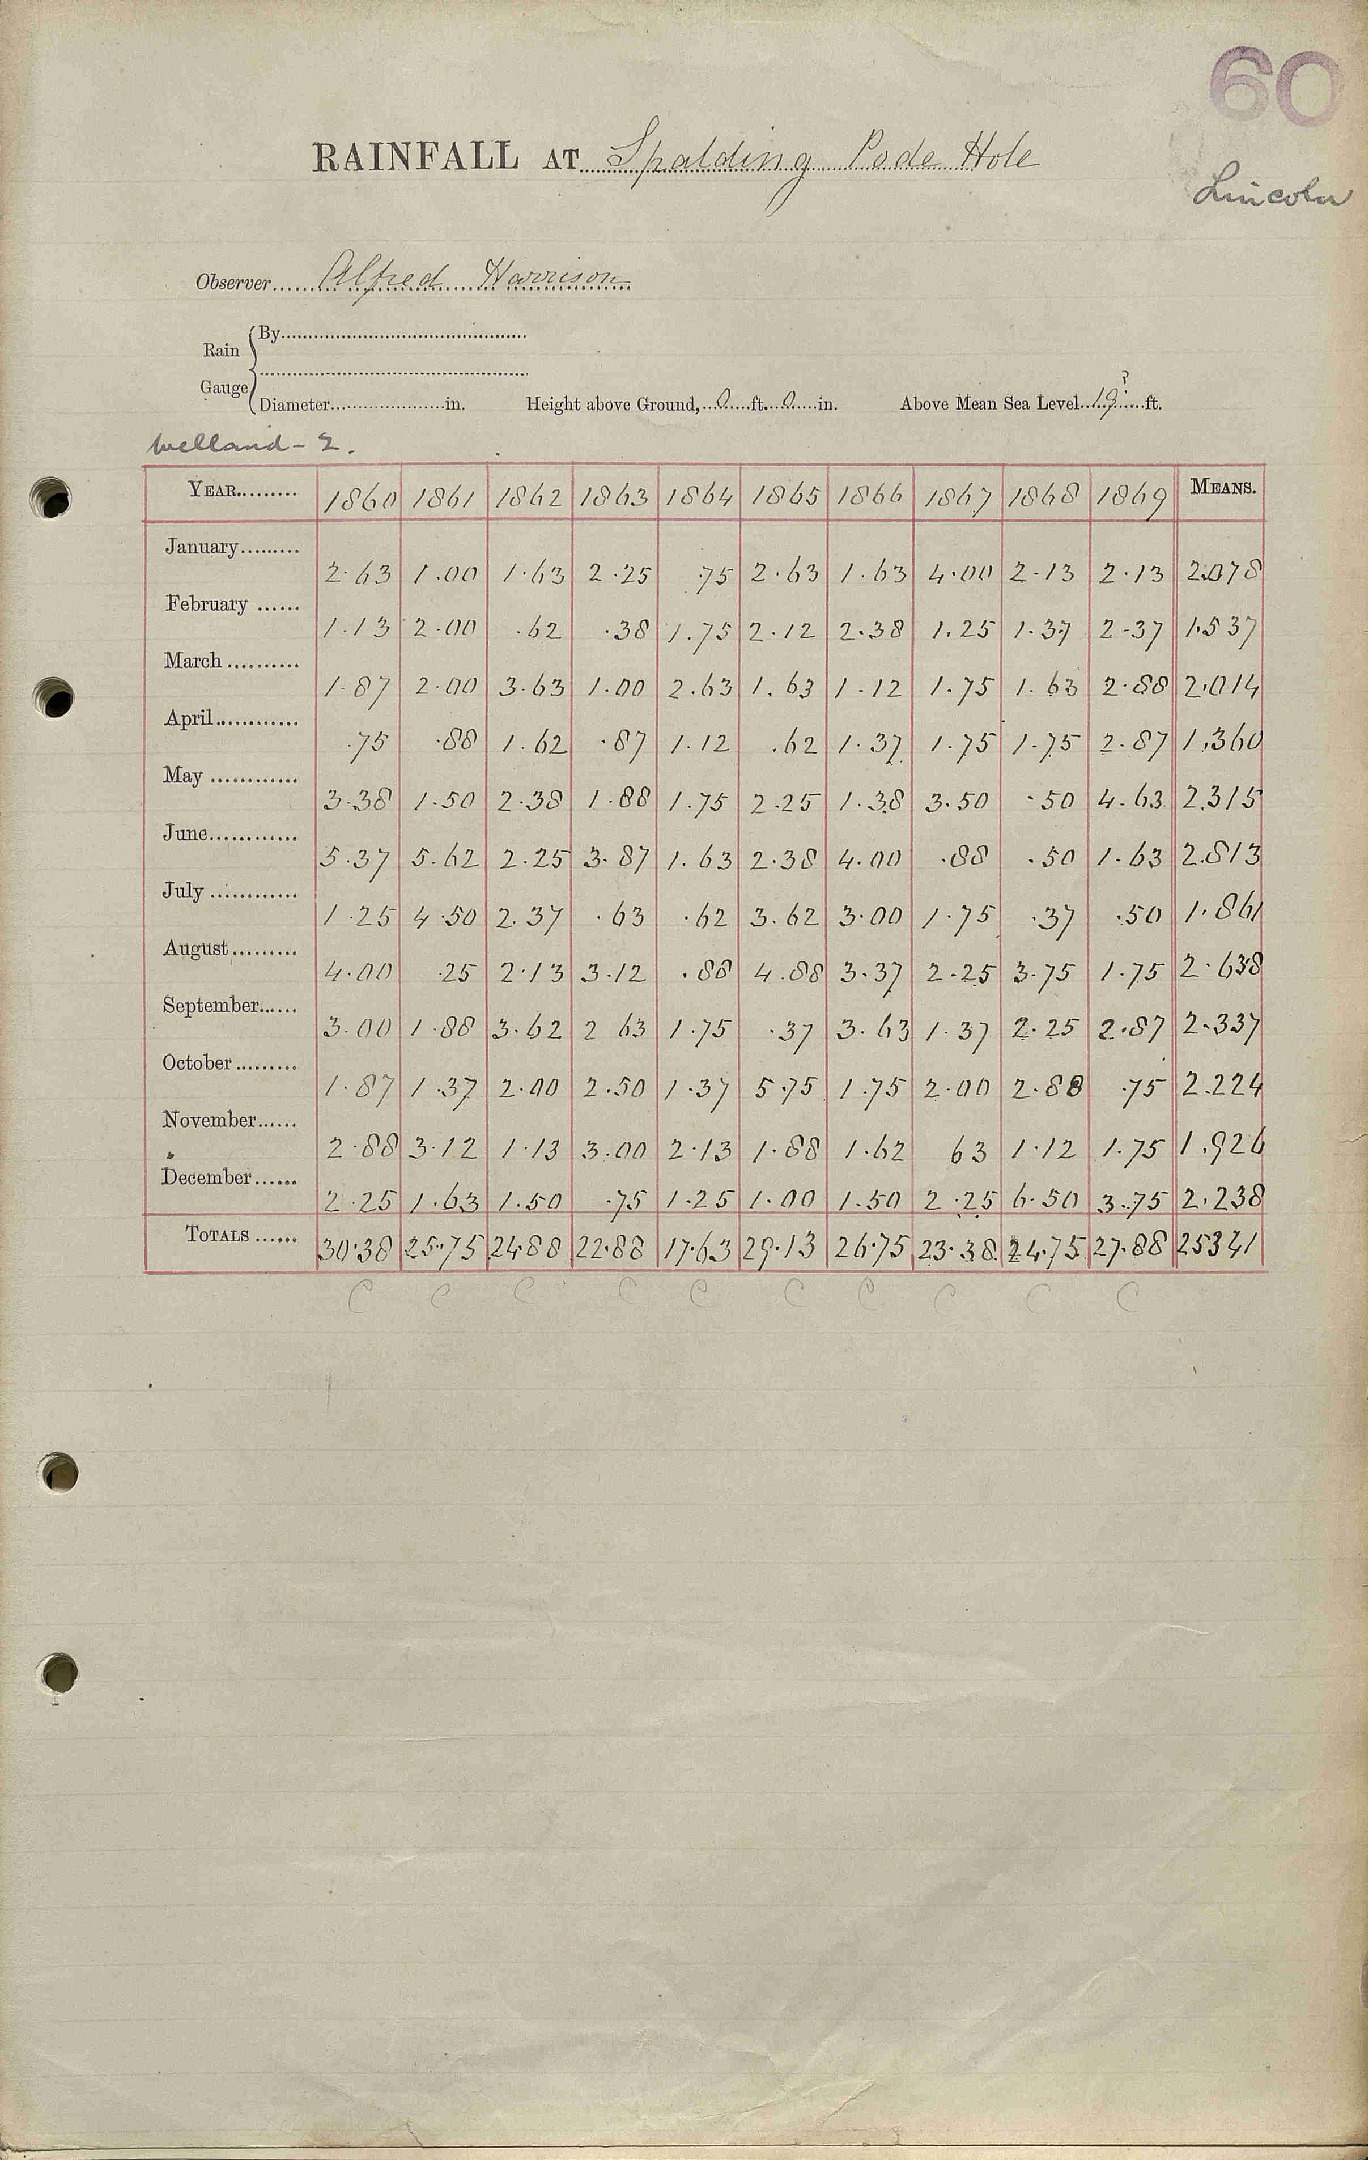 60
RAINFALL AT Spalding Pode Hole
Lincoln
Observer Alfred Harrison
Rain Gauge
By
Diameter in. Height above Ground, 0 ft. 0 in. Above Mean Sea Level 19? ft.
Welland - 2.
YEAR 1860 1861 1862 1863 1864 1865 1866 1867 1868 1869 MEANS.
January 2.63 1.00 1.63 2.25 .75 2.63 1.63 4.00 2.13 2.13 2.078
February 1.13 2.00 .62 .38 1.75 2.12 2.38 1.25 1.37 2.37 1.537
March 1.87 2.00 3.63 1.00 2.63 1.63 1.12 1.75 1.63 2.88 2.014
April .75 .88 1.62 .87 1.12 .62 1.37 1.75 1.75 2.87 1.360
May 3.38 1.50 2.38 1.88 1.75 2.25 1.38 3.50 .50 4.63 2.315
June 5.37 5.62 2.25 3.87 1.63 2.38 4.00 .88 .50 1.63 2.813
July 1.25 4.50 2.37 .63 .62 3.62 3.00 1.75 .37 .50 1.861
August 4.00 .25 2.13 3.12 .88 4.88 3.37 2.25 3.75 1.75 2.638
September 3.00 1.88 3.62 2 63 1.75 .37 3.63 1.37 2.25 2.87 2.337
October 1.87 1.37 2.00 2.50 1.37 5.75 1.75 2.00 2.88 .75 2.224
November 2.88 3.12 1.13 3.00 2.13 1.88 1.62 63 1.12 1.75 1.926
December 2.25 1.63 1.50 .75 1.25 1.00 1.50 2.25 6.50 3.75 2.238
TOTALS 30.38 25.75 24.88 22.88 17.63 29.13 26.75 23.38 24.75 27.88 25341
C C C C C C C C C C